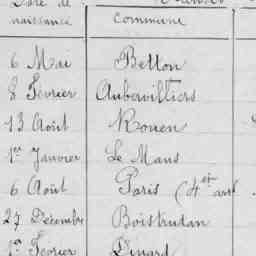 Date de
naissance
commune
6 Mai Betton
8 Fevrier Aubervilliers
13 Août Rouen
1er Janvier Le Mans
6 Août Paris (4et arrt
27 Décembre Boistrudan
1er Fevrier Dinard